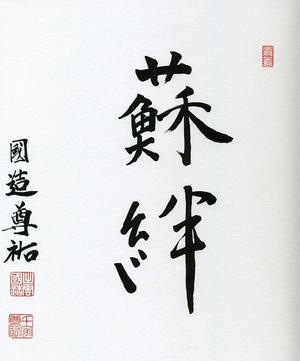 蘇絆
國造尊祐